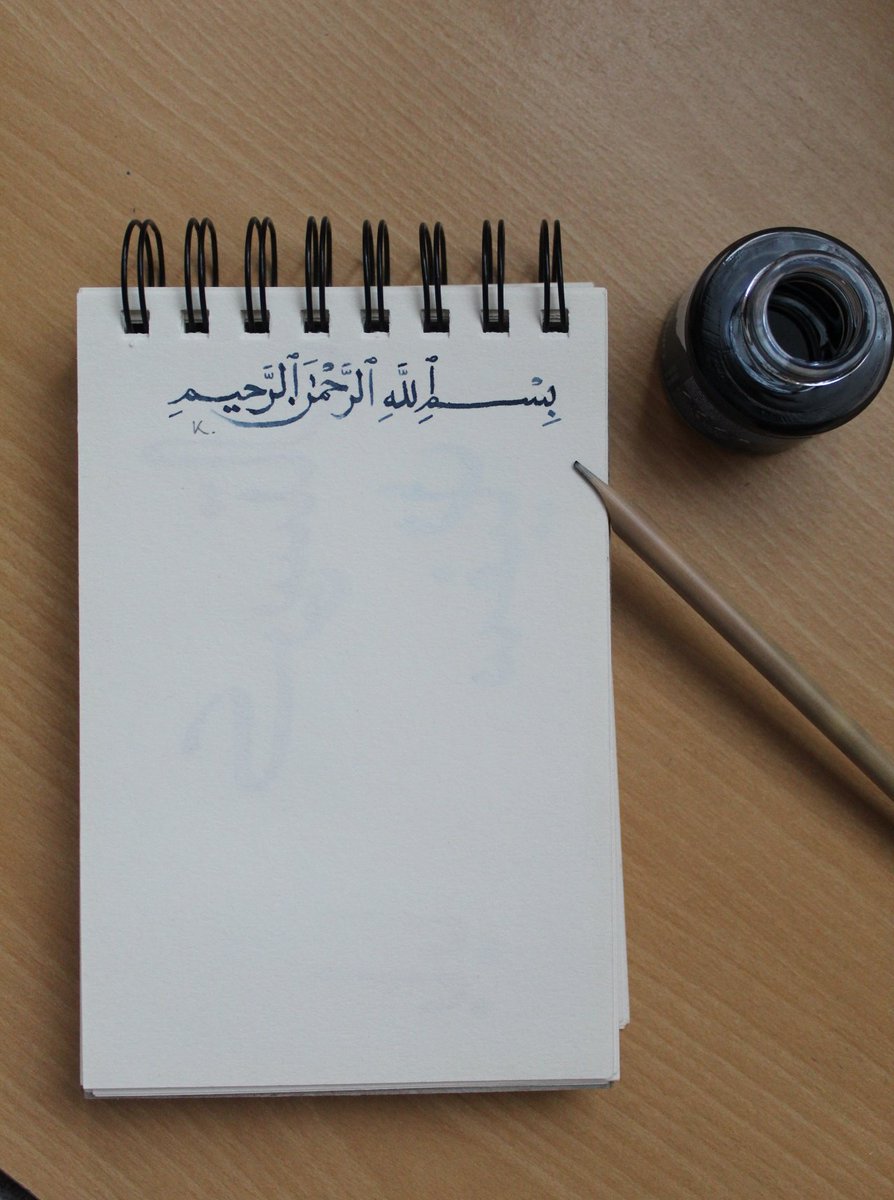 بِسْمِ ٱللَّهِ ٱلرَّحْمَٰنِ ٱلرَّحِيمِ
K.